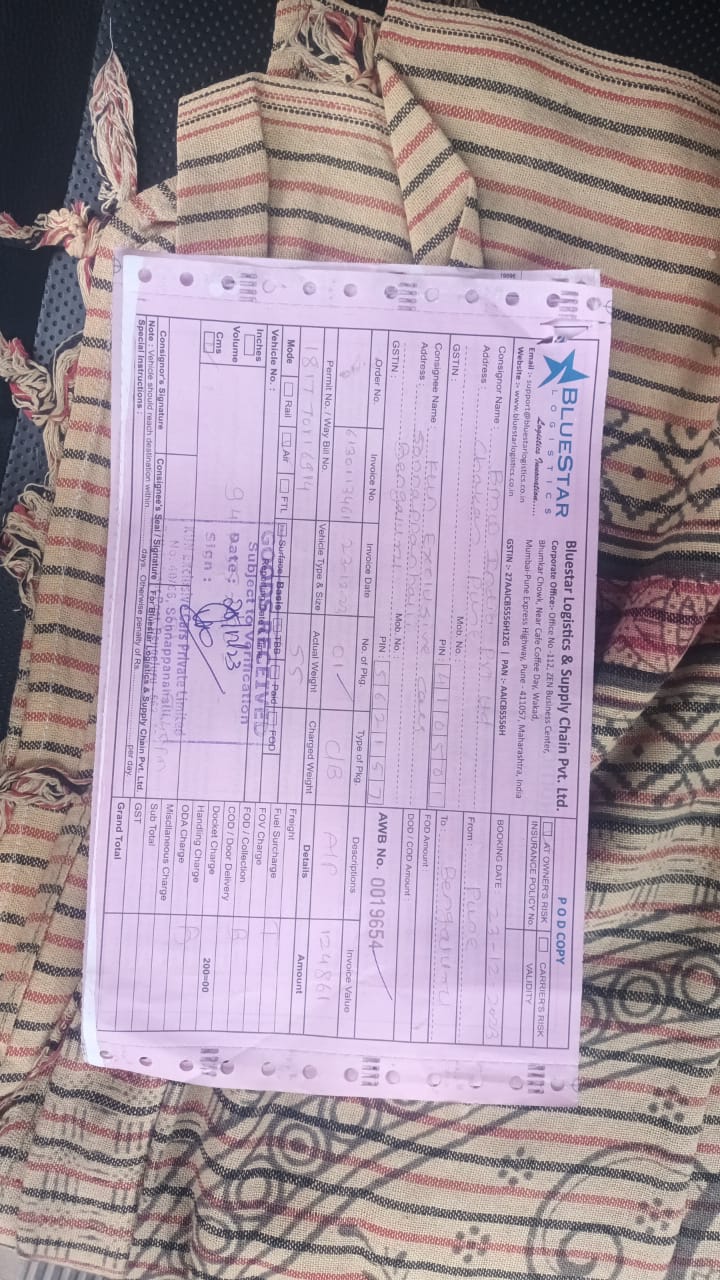 BLUESTAR
LOGISTICS
Logistics Innovation.....
Email :- support@bluestarlogistics.co.in
Website :- www.bluestarlogistics.co.in
Bluestar Logistics & Supply Chain Pvt. Ltd.
Corporate Office:- Office No -112, ZEN Business Center,
Bhumkar Chowk, Near Cafe Coffee Day, Wakad,
Mumbai-Pune Express Highway, Pune - 411057, Maharashtra, India
GSTIN :- 27AAICB5556H1ZG | PAN :- AAICB5556H
POD COPY
AT OWNER'S RISK CARRIER'S RISK
INSURANCE POLICY No. VALIDITY
BOOKING DATE : 23-12-2023
From : Pune
To : Bengaluru
FOD Amount :
DOD / COD Amount :
AWB No. 0019654
Consignor Name : BMW India Pvt Ltd
Address : Chakan Pune
Mob. No. :
GSTIN : PIN : 410501
Consignee Name : KUN Exclusive Cars
Address : Sonnappanhalli
Bengaluru
GSTIN : Mob. No. :
PIN : 562157
Order No. Invoice No. Invoice Date No. of Pkg. Type of Pkg. Descriptions Invoice Value
6130113461 23-12-23 01 C/B A/P 124861
Permit No. / Way Bill No. Vehicle Type & Size Actual Weight Charged Weight
55
Mode Rail Air FTL Surface Basis TBB Paid FOD
Vehicle No. : Reporting Date & Time
Inches
Volume
Cms
94
GOODS RECEIVED
Subject to Verification
Date : 25/12/23
Sign :
KUN Exclusive Cars Private Limited
Sonnappanahalli,
Details Amount
Freight
Fuel Surcharge
FOV Charge
FOD / Collection
COD / Door Delivery
Docket Charge 200=00
Handling Charge
ODA Charge
Miscllaneous Charge
Sub Total
GST
Grand Total
Consignor's Signature Consignee's Seal / Signature For Bluestar Logistics & Supply Chain Pvt. Ltd.
Note : Vehicle should reach destination within..............days. Otherwise penalty of Rs..........................per day.
Special Instructions :